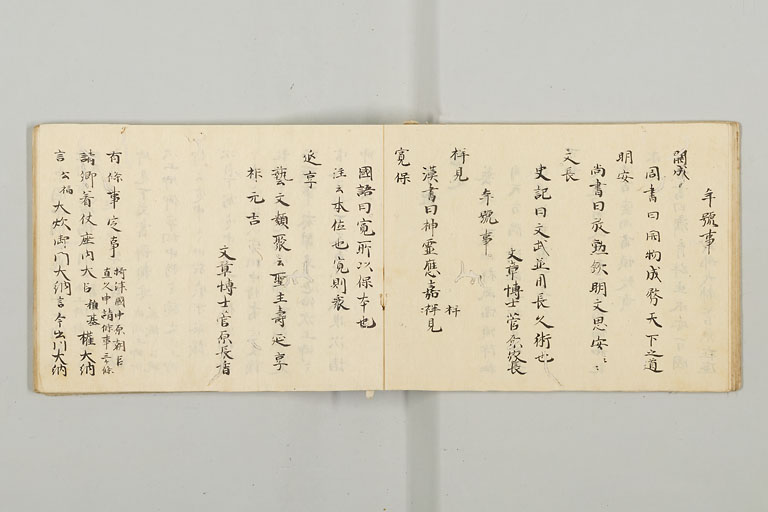 年號事
開成
周書曰開物成務天下之道
明安
尚書曰放勲欽明文思安ゝ
文長
史記曰文武並用長久術也
文章博士菅原総長
年號事
祥見
漢書曰神靈應嘉祥見
祥
寛保
國語曰寛所以保本也
注云本位也寛則衆
延享
藝文類聚云聖主壽延享
祚元吉
文章博士菅原長香
有條事定事
攝津國中原朝臣
直久申請條事三ケ條
諸卿着仗座内大臣 植基 權大納
言 公福 大炊御門大納言今出川大納